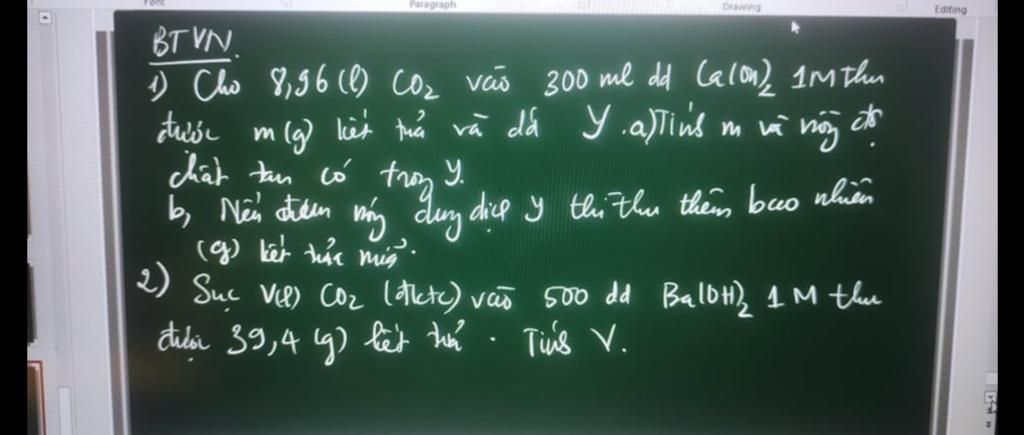 Font
Paragraph
Drawing
Editing
BTVN.
1) Cho 8,96 (l) CO2 vào 300 ml dd Ca(OH)2 1M thu
được m(g) kết tủa và dd Y. a) Tính m và nồng độ
chất tan có trong Y.
b, Nếu đun nóng dung dịch Y thì thu thêm bao nhiêu
(g) kết tủa nữa.
2) Sục V(l) CO2 (đktc) vào 500 dd Ba(OH)2 1M thu
được 39,4 (g) kết tủa. Tính V.